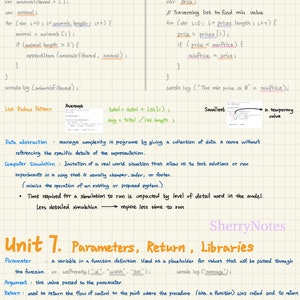 var animal;
for (var i=0; i < animals.length; i++) {
animal = animals [i];
if (animal.length > 5) {
appendItem (animalsFiltered, animal);
}
}
// Traversing list to find min value
for (var i=0; i < prices.length; i++) {
price = prices [i];
if ( price < minPrice) {
minPrice = price;
}
}
console.log ("The min price is $" + minPrice);
List Reduce Pattern
Average
total = total + list [i] ;
avg = total / list.length ;
Smallest
a temporary
value
Data abstraction : manage complexity in programs by giving a collection of data a name without
referencing the specific details of the representation.
Computer Simulation : Imitation of a real world situation that allow us to test solutions or run
experiments in a way that is usually cheaper, safer, or faster
( mimics the operation of an existing or proposed system )
• Time required for a simulation to run is impacted by level of detail used in the model.
Less detailed simulation → require less time to run
SherryNotes
Unit 7. Parameters, Return, Libraries
Parameter : a variable in a function definition. Used as a placeholder for values that will be passed through
the function. ex. setProperty ("id", "width", 100); console.log ("message");
Argument : the value passed to the parameter
Return : used to return the flow of control to the point where the procedure (aka. a function) was called and to return